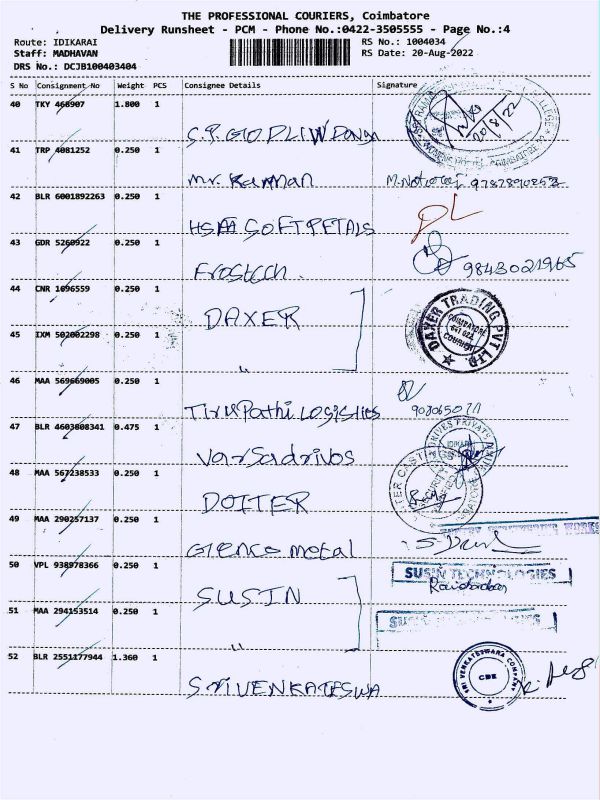 THE PROFESSIONAL COURIERS, Coimbatore
Delivery Runsheet - PCM - Phone No.:0422-3505555 - Page No.:4
Route: IDIKARAI RS No.: 1004034
Staff: MADHAVAN RS Date: 20-Aug-2022
DRS No.: DCJB100403404
S No Consignment No Weight PCS Consignee Details Signature
40 TKY 468907 1.800 1
20/8/22
41 TRP 4081252 0.250 1
Mr. Raman
42 BLR 6001892263 0.250 1
SOFTPETALS
43 GDR 5260922 0.250 1
Frostech. 9843021965
44 CNR 1696559 0.250 1
DAXER DAXER TRADING PVT LTD. COIMBATORE 641 022 COURIER
45 IXM 502002298 0.250 1
"
46 MAA 569669005 0.250 1
Tirupathi Logistics
47 BLR 4603808341 0.475 1
Varsadrivos
48 MAA 567238533 0.250 1
DOITER
49 MAA 290257137 0.250 1
Glenco metal
50 VPL 938978366 0.250 1
SUSIN SUSIN TECHNOLOGIES
51 MAA 294153514 0.250 1
"
52 BLR 2551177944 1.360 1
SRI VENKATESWARA COMPANY CBE
SriVENKATESWA